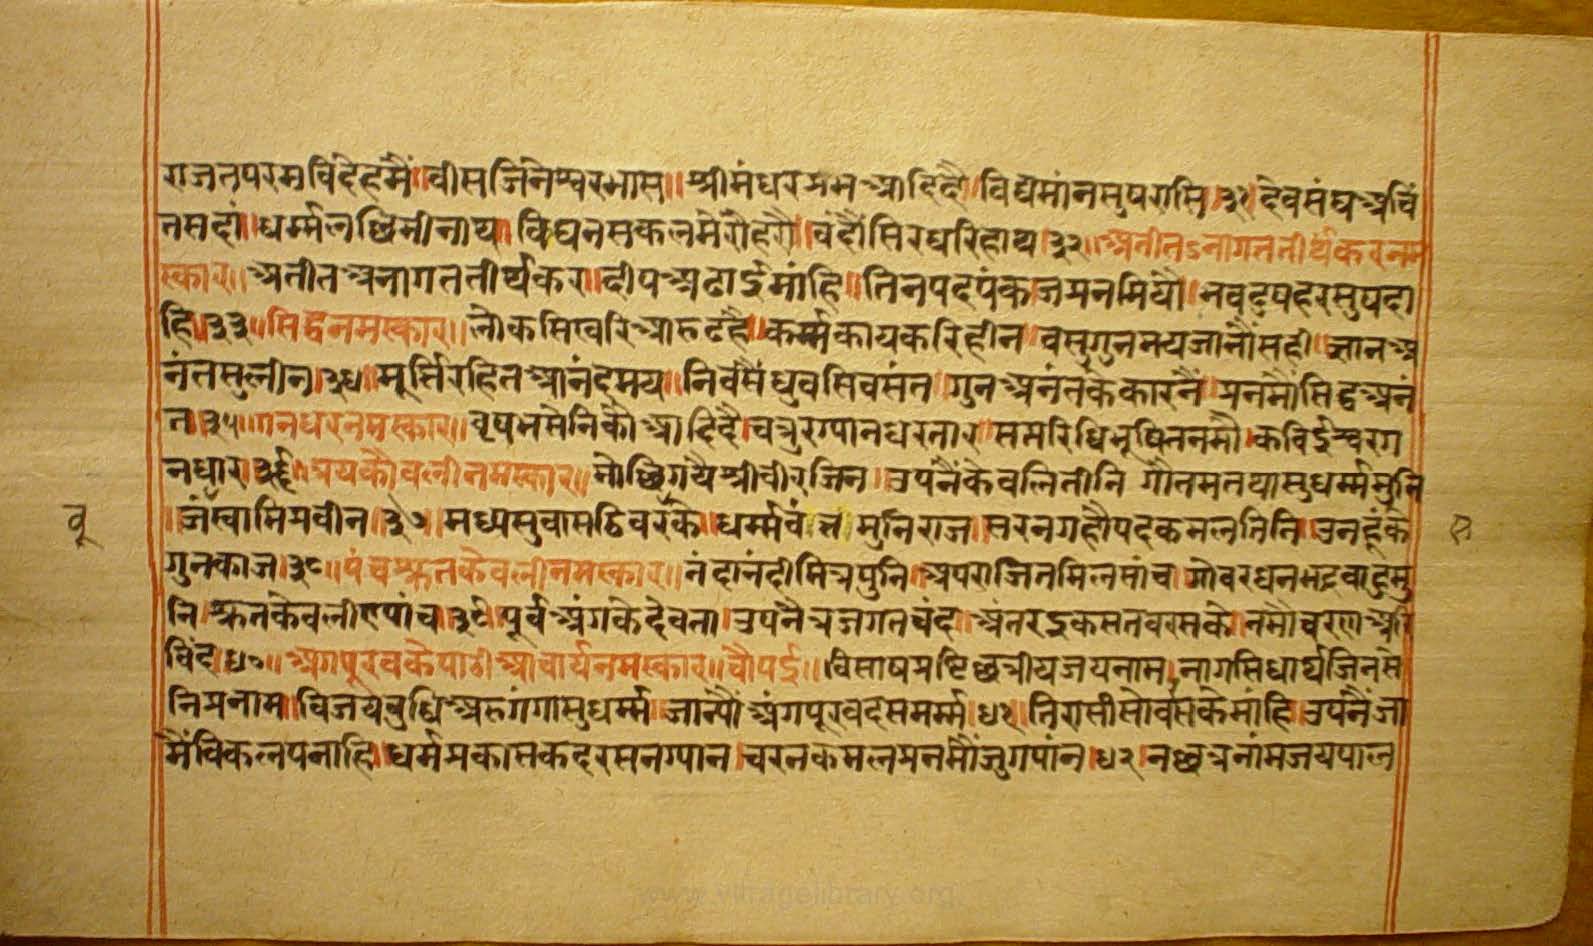 राजतपरमविदेहमैं॥वीसजिनेस्वरभास॥श्रीमंधरप्रभआदिदौ।विद्यमांनसुषरासि।३१।देवसंघअविं
नसदां॥धर्म्मलछिमीनाथ।विघनसकलमेरौहरौ।वंदौंसिरधरिहाथ।३२॥अतीतऽनागततीर्थकरनम
स्कार॥अतीतअनागततीर्थकर।दीपअढाईमांहि॥तिनपदपंकजप्रनमियौ।नवदुषहरसुषदा
हि।३३॥सिद्धनमस्कार॥लोकसिखरिआरुढहै॥कर्म्मकायकरिहीन।वसुगुनमयजानौंसही।ज्ञानअ
नंतसुलीन।३४॥मूर्त्तिरहितआनंदमय॥निवसैंध्रुवसिवसंत।गुनअनंतकेकारनैं।प्रनमौंसिद्धअनं
त।३५।गनधरनमस्कार॥वृषभसैनिकौआदिदै।चत्रुरग्यानधरतार।समरिधिभूषितनमौं।कविईस्वरग
नधार।३६॥त्रयकैवलीनमस्कार॥मोछिगयैश्रीवीरजिन।उपनैंकेवलितीनि।गौतमतथासुधर्म्ममुनि
।जंबूस्वामिप्रवीन।३७।मध्यसुवासठिवरकै।धर्म्मवं मुनिराज।सरनगहौपदकमलतिनि।उनहूंके
गुनकाज।३८॥पंचश्रुतकेवलीनमस्कार॥नंदानंदीमित्रपुनि।अपराजितमिलपांच।गोवरधनभद्रवाहुमु
नि।श्रुतकेवलीएपांच।३९।पूर्वअंगकेदेवता।उपनैत्रजगतवंद।अंतरइकसतवरसके।नमौंचरणअ
विंद।४०॥अंगपूरवकेपाठीआचार्यनमस्कार॥चौपई॥विसाषप्रष्टिछत्रीयजयनाम।नागसिधार्थजिनसे
निप्रनाम।विजयबुधिअरुगंगासुधर्म्म।जान्यौंअंगपूरवदसमर्म्म।४१।तिरासीसोवर्सकेमांहि।उपनैंजा
मैंविकलपनाहि।धर्मप्रकासकदरसनग्यान।चरनकमलप्रनमौंजुगपांन।४२।नछत्रनांमजयपाल
www.vitragelibrary.org